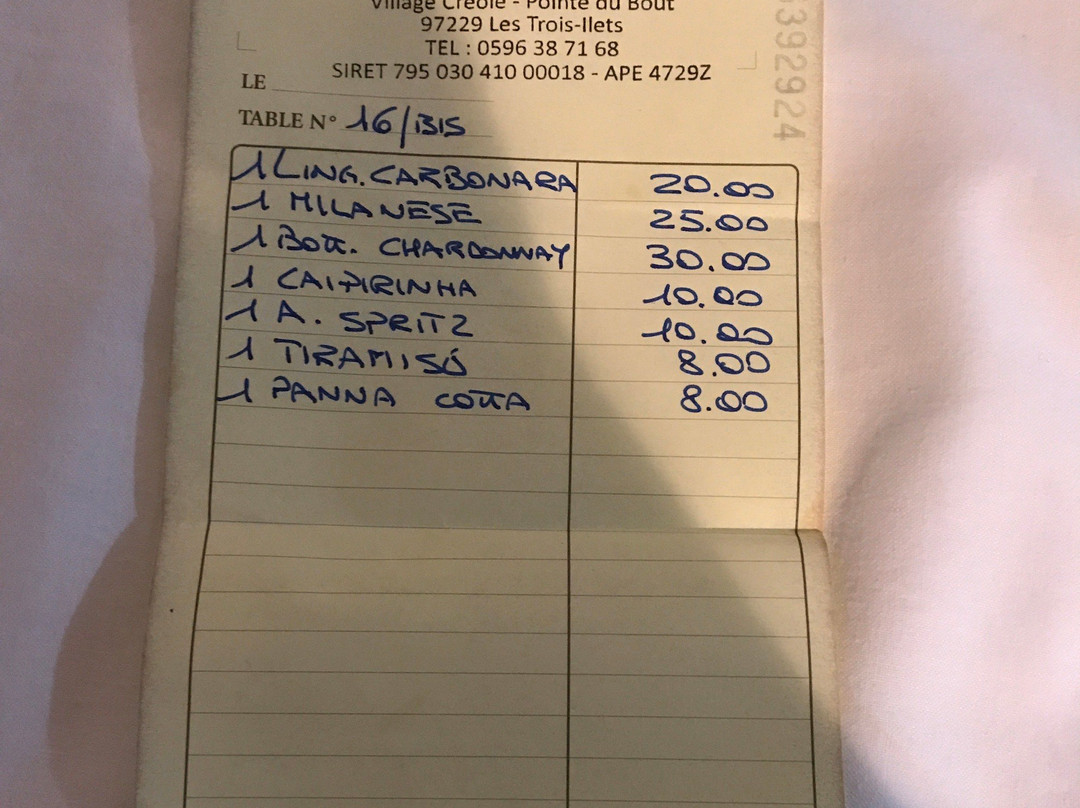 Village Créole - Pointe du Bout
97229 Les Trois-Ilets
TEL : 0596 38 71 68
SIRET 795 030 410 00018 - APE 4729Z
LE
TABLE N° 16/BIS
1 LING. CARBONARA 20.00
1 MILANESE 25.00
1 BOTT. CHARDONNAY 30.00
1 CAIPIRINHA 10.00
1 A. SPRITZ 10.00
1 TIRAMISÚ 8.00
1 PANNA COTTA 8.00
392924